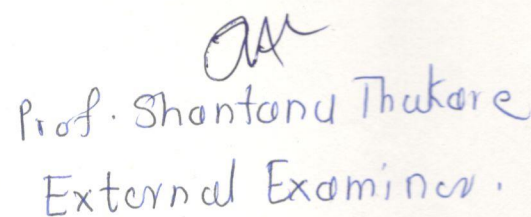 Prof. Shantanu Thakare
External Examiner.